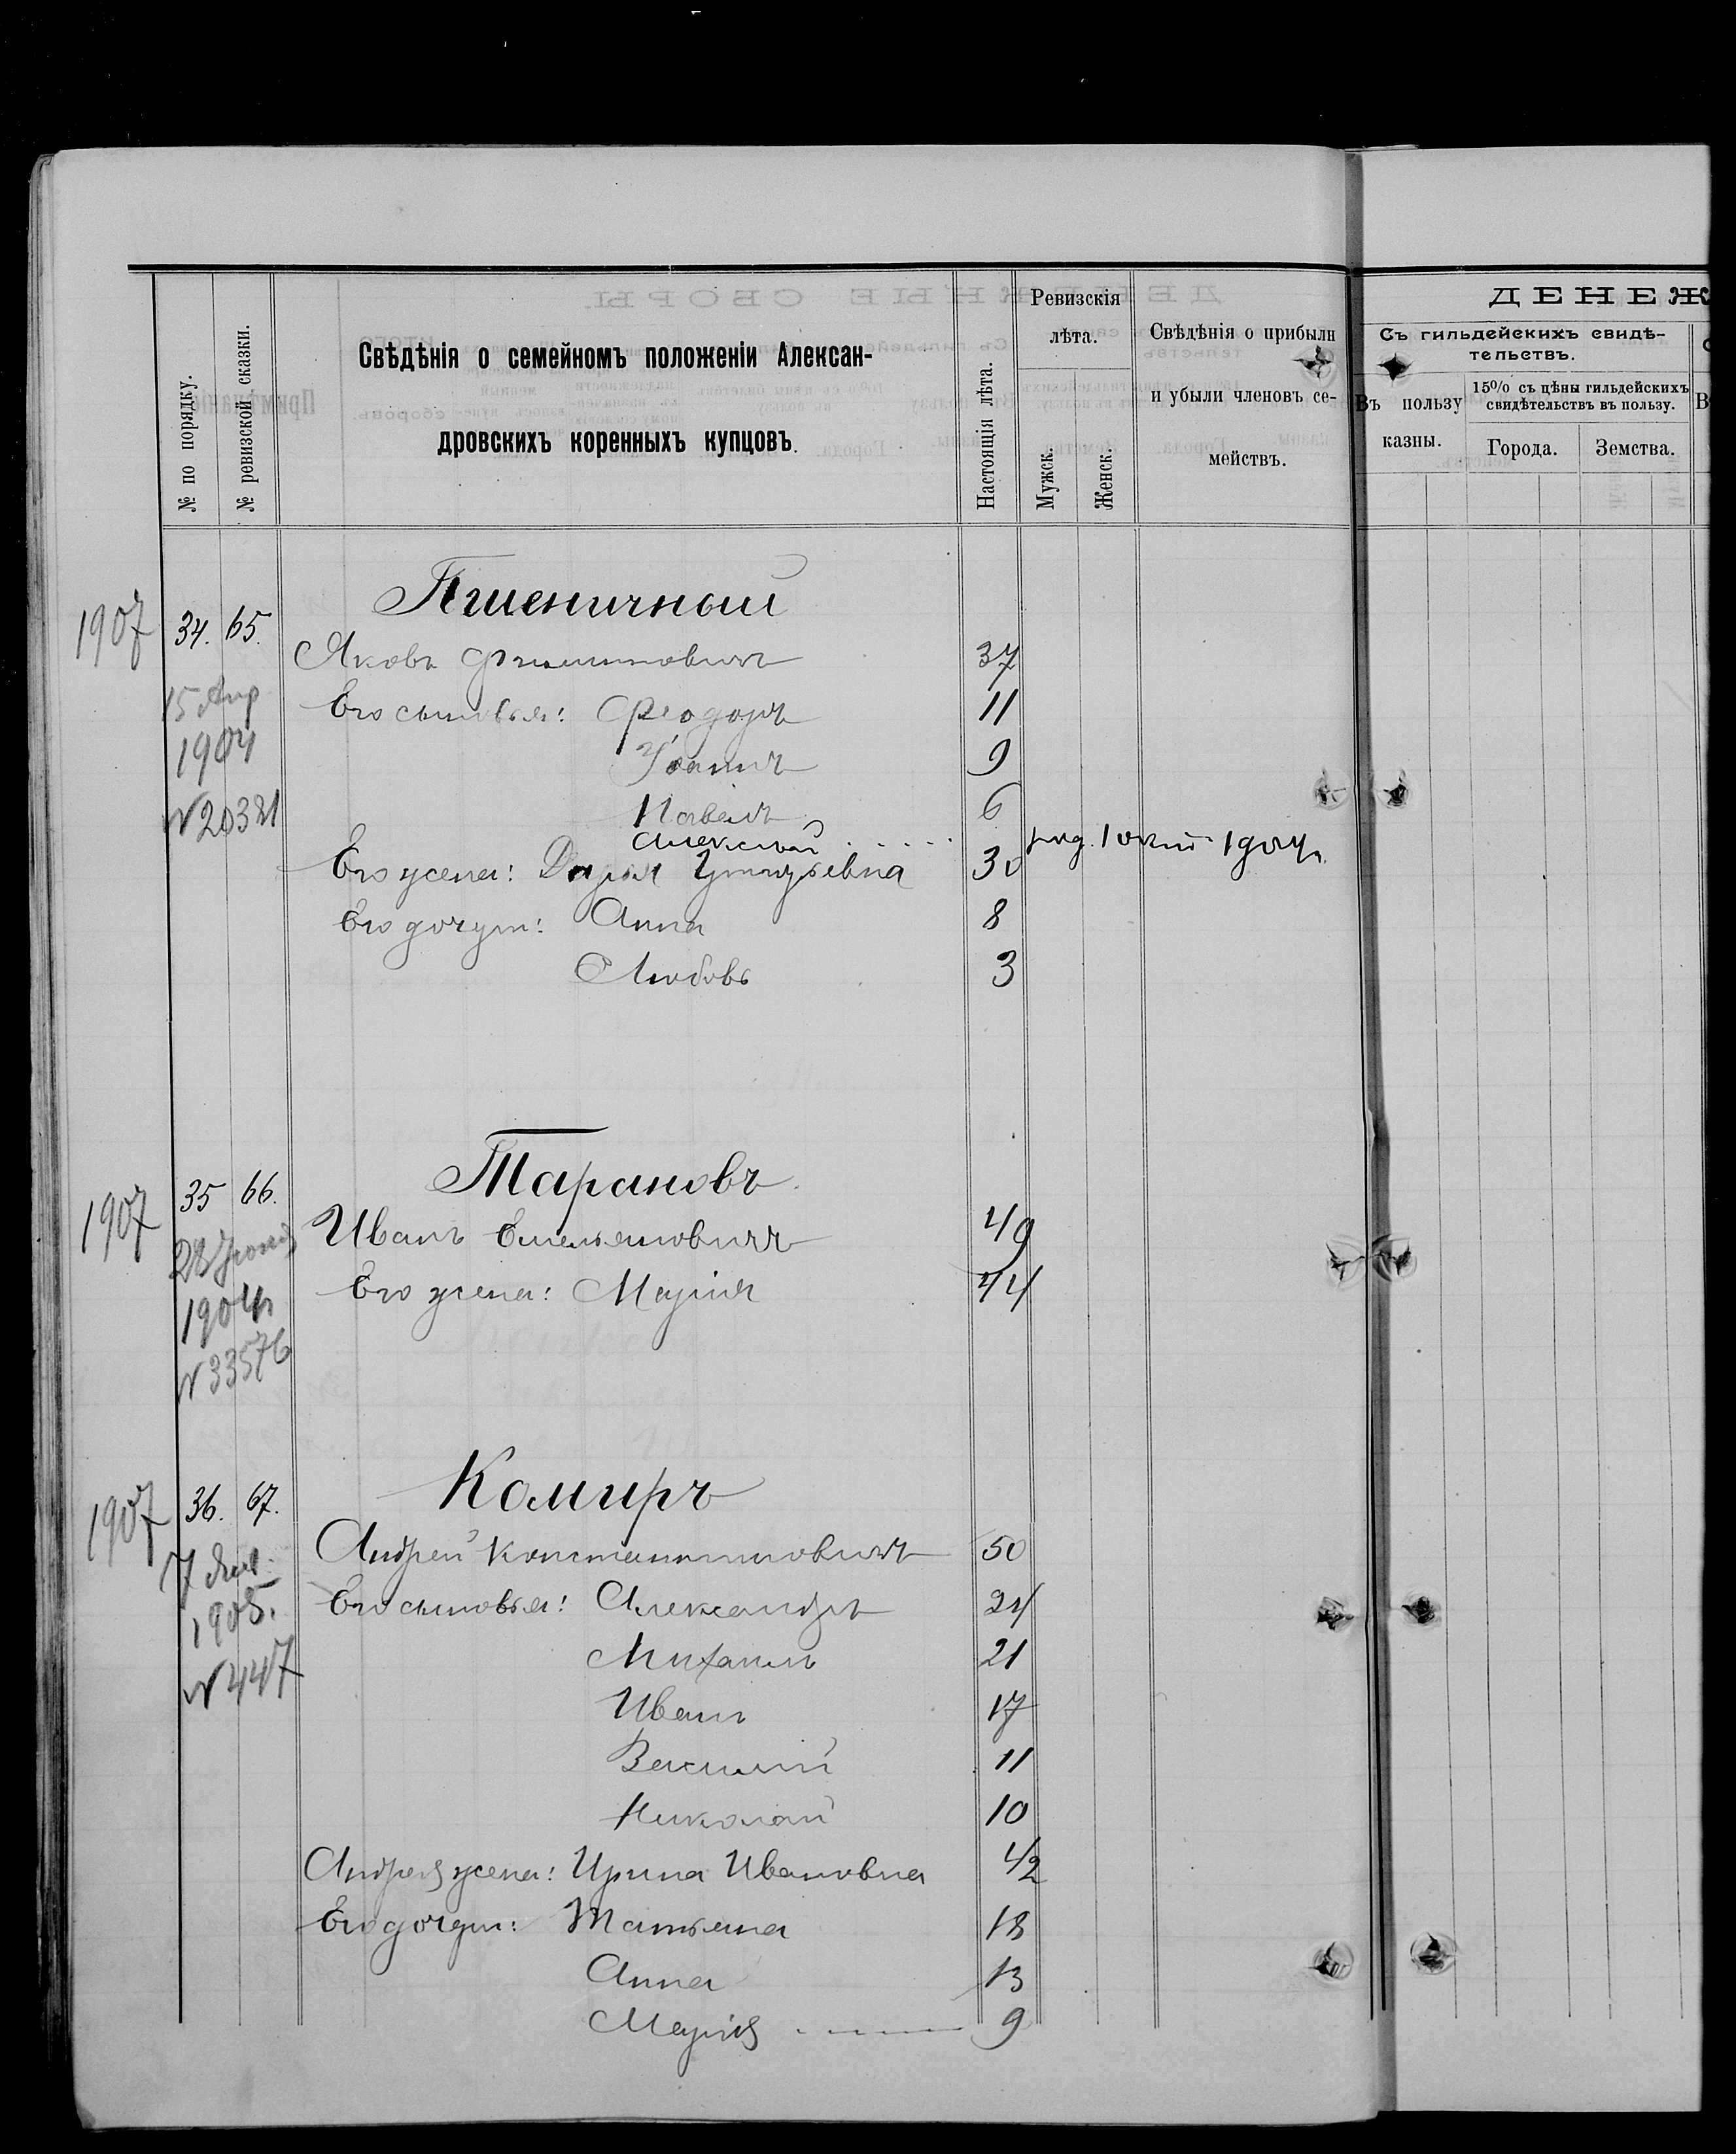 № по порядку.
№ ревизской сказки.
Свѣдѣнія о семейномъ положеніи Алексан-
дровскихъ коренныхъ купцовъ.
Настоящія лѣта.
Ревизскія
лѣта.
Мужск.
Женск.
Свѣдѣнія о прибыли
и убыли членовъ се-
мействъ.
ДЕНЕЖ
Съ гильдейскихъ свидѣ-
тельствъ.
Въ пользу
казны.
15% съ цѣны гильдейскихъ
свидѣтельствъ въ пользу.
Города.
Земства.
Пшеничный
1907 34. 65.
Яковъ Филипповичъ 37
15 Апр
Его сыновья: Феодоръ 11
1904
Іоаннъ 9
Павелъ 6
N 20381
Алексѣй . . . . . род. 1 окт. 1904 г.
Его жена: Дарья Григорьевна 30
Его дочери: Анна 8
Любовь 3
Тарановъ
1907 35 66.
Иванъ Емельяновичъ 49
28 Іюня
Его жена: Марія 44
1904 г.
N 33576
Комиръ
1907 36. 67.
Андрей Константиновичъ 50
7 Янв.
Его сыновья: Александръ 24
1905.
Михаилъ 21
N 447
Иванъ 17
Василий 11
Николай 10
Андрея жена: Ирина Ивановна 42
Его дочери: Татьяна 18
Анна 13
Марія 9